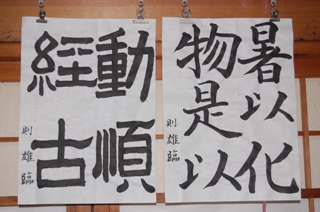 暑以化
物是以
則雄臨
動順
經古
則雄臨